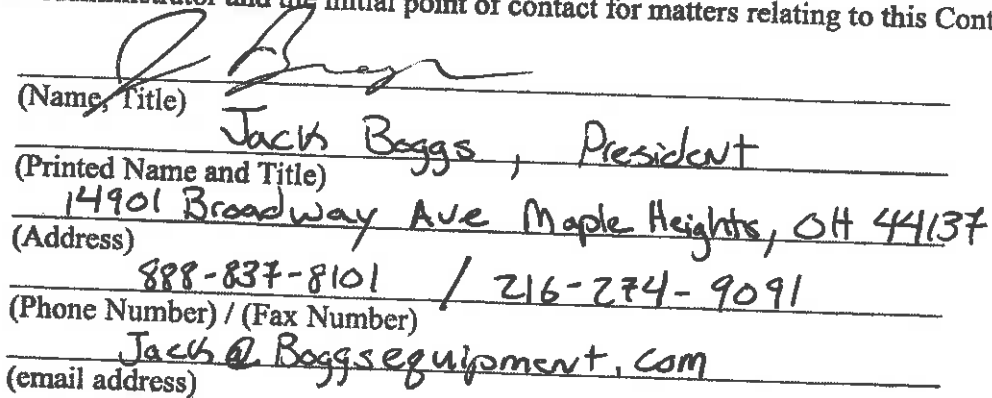 and the initial point of contact for matters relating to this Cont
(Name, Title)
Jack Boggs, President
(Printed Name and Title)
14901 Broadway Ave Maple Heights, OH 44137
(Address)
888-837-8101 / 216-274-9091
(Phone Number) / (Fax Number)
Jack@Boggsequipment.com
(email address)